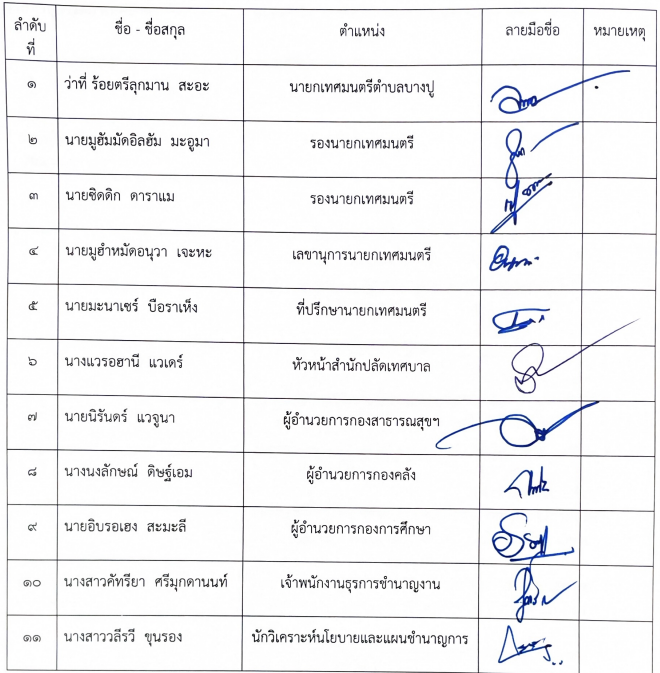 ลำดับที่ ชื่อ - ชื่อสกุล ตำแหน่ง ลายมือชื่อ หมายเหตุ
๑ ว่าที่ ร้อยตรีลุกมาน สะอะ นายกเทศมนตรีตำบลบางปู
๒ นายมูฮัมมัดอิลฮัม มะอูมา รองนายกเทศมนตรี
๓ นายซิดดิก ดาราแม รองนายกเทศมนตรี
๔ นายมูฮำหมัดอนุวา เจะหะ เลขานุการนายกเทศมนตรี
๕ นายมะนาเซร์ บือราเห็ง ที่ปรึกษานายกเทศมนตรี
๖ นางแวรอฮานี แวเดร์ หัวหน้าสำนักปลัดเทศบาล
๗ นายนิรันดร์ แวจูนา ผู้อำนวยการกองสาธารณสุขฯ
๘ นางนงลักษณ์ ดิษฐ์เอม ผู้อำนวยการกองคลัง
๙ นายอิบรอเฮง สะมะลี ผู้อำนวยการกองการศึกษา
๑๐ นางสาวคัทรียา ศรีมุกดานนท์ เจ้าพนักงานธุรการชำนาญงาน
๑๑ นางสาววลีรวี ขุนรอง นักวิเคราะห์นโยบายและแผนชำนาญการ